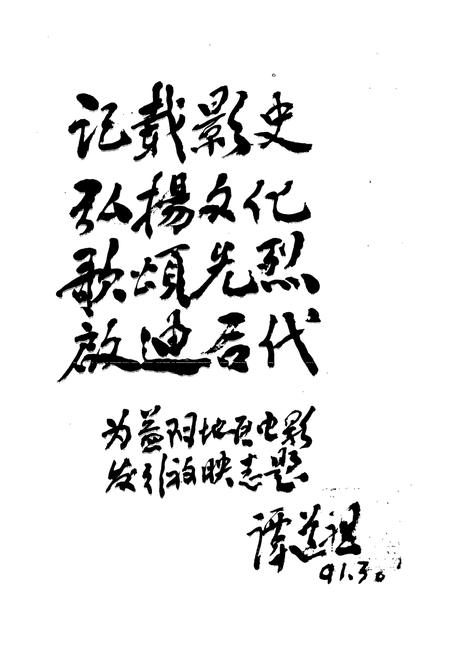 记载影史
弘揚文化
歌頌先烈
啟迪后代
为益阳地区电影
发行放映志题
谭道祖
91.3.